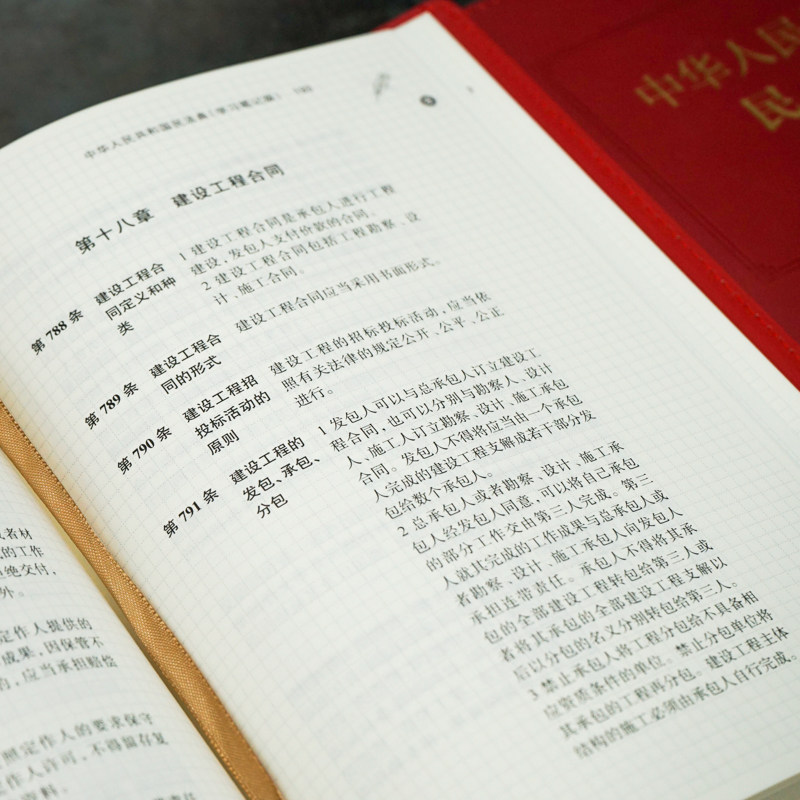 中华人民共和国民法典(学习笔记版)
第十八章 建设工程合同
第 788 条
建设工程合
同定义和种
类
1 建设工程合同是承包人进行工程
建设,发包人支付价款的合同。
2 建设工程合同包括工程勘察、设
计、施工合同。
第 789 条
建设工程合
同的形式
建设工程合同应当采用书面形式。
第 790 条
建设工程招
投标活动的
原则
建设工程的招标投标活动,应当依
照有关法律的规定公开、公平、公正
进行。
第 791 条
建设工程的
发包、承包、
分包
1 发包人可以与总承包人订立建设工
程合同,也可以分别与勘察人、设计
人、施工人订立勘察、设计、施工承包
合同。发包人不得将应当由一个承包
人完成的建设工程支解成若干部分发
包给数个承包人。
2 总承包人或者勘察、设计、施工承
包人经发包人同意,可以将自己承包
的部分工作交由第三人完成。第三
人就其完成的工作成果与总承包人或
者勘察、设计、施工承包人向发包人
承担连带责任。承包人不得将其承
包的全部建设工程转包给第三人或
者将其承包的全部建设工程支解以
后以分包的名义分别转包给第三人。
3 禁止承包人将工程分包给不具备相
应资质条件的单位。禁止分包单位将
其承包的工程再分包。建设工程主体
结构的施工必须由承包人自行完成。
者材
的工作
拒绝交付,
外。
定作人提供的
成果,因保管不
的,应当承担赔偿
照定作人的要求保守
作人许可,不得留存复
资料。
中华人民
民